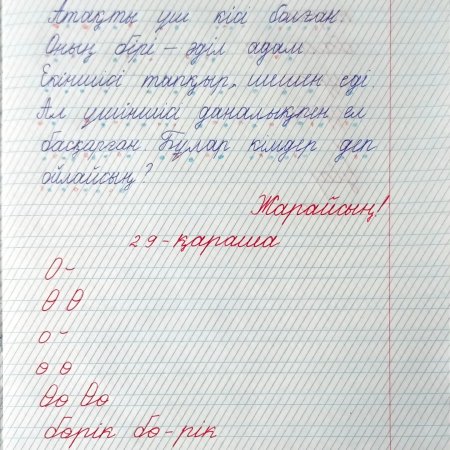 Атақты үш кісі болған
Оның бірі – әділ адам
Екіншісі тапқыр, шешен еді
Ал үшіншісі даналықпен ел
басқарған. Бұлар кімдер деп
ойлайсың?
Жарайсың!
29-қараша
О-
Ө Ө
о-
ө ө
Өө Өө
бөрік бө-рік